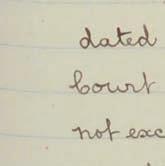 dated
Court
not exc